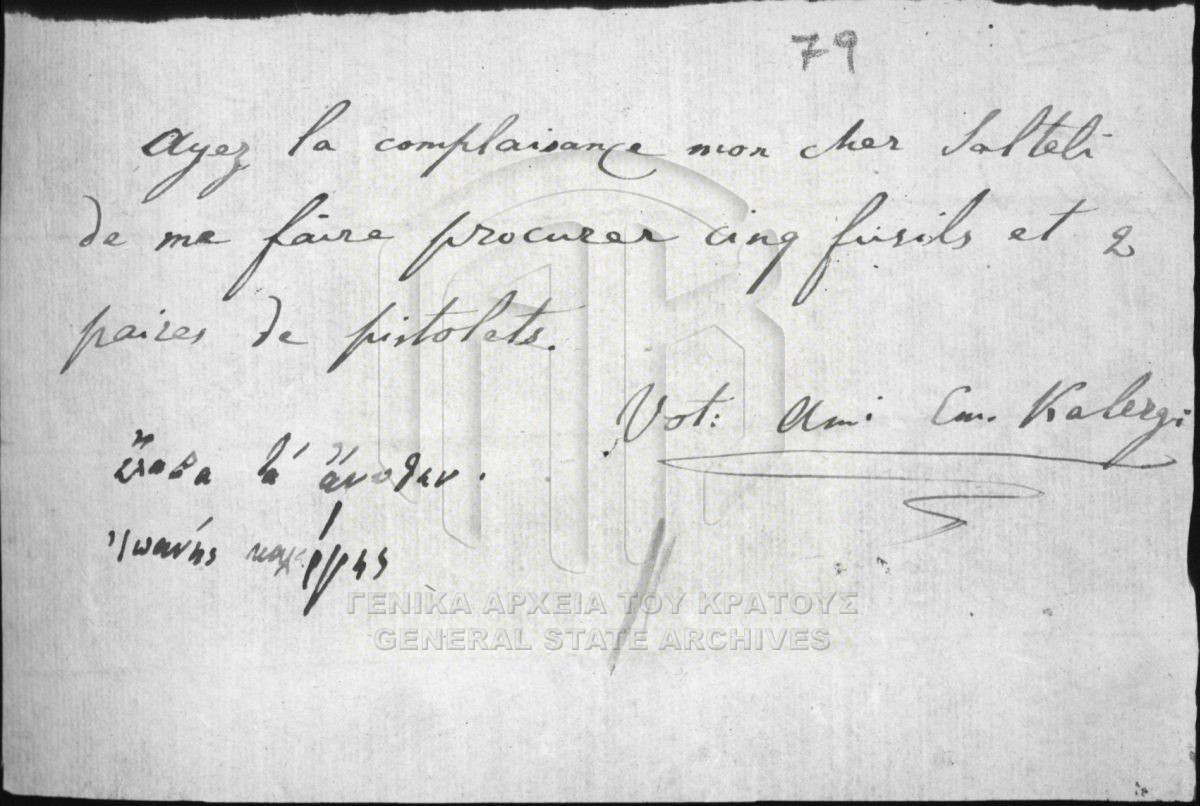 79
Ayez la complaisance mon cher Salteli
de me faire procurer cinq fusils et 2
paires de pistolets.
Vot: Ami Em. Kalergi
ἔλαβα τά ἄνοθεν.
Ἰωανής
ΓΕΝΙΚΑ ΑΡΧΕΙΑ ΤΟΥ ΚΡΑΤΟΥΣ
GENERAL STATE ARCHIVES